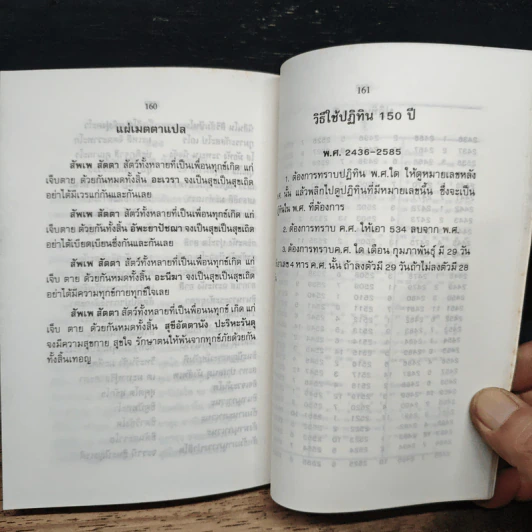 160
แผ่เมตตาแปล
สัพเพ สัตตา สัตว์ทั้งหลายที่เป็นเพื่อนทุกข์เกิด แก่
เจ็บ ตาย ด้วยกันหมดทั้งสิ้น อะเวรา จงเป็นสุขเป็นสุขเถิด
อย่าได้มีเวรแก่กันและกันเลย
สัพเพ สัตตา สัตว์ทั้งหลายที่เป็นเพื่อนทุกข์เกิด แก่
เจ็บ ตาย ด้วยกันทั้งสิ้น อัพะยาปัชฌา จงเป็นสุขเป็นสุขเถิด
อย่าได้เบียดเบียนซึ่งกันและกันเลย
สัพเพ สัตตา สัตว์ทั้งหลายที่เป็นเพื่อนทุกข์เกิด แก่
เจ็บ ตาย ด้วยกันหมดทั้งสิ้น อะนีฆา จงเป็นสุขเป็นสุขเถิด
อย่าได้มีความทุกข์กายทุกข์ใจเลย
สัพเพ สัตตา สัตว์ทั้งหลายที่เป็นเพื่อนทุกข์ เกิด แก่
เจ็บ ตาย ด้วยกันหมดทั้งสิ้น สุขีอัตตานัง ปะริหะรันตุ
จงมีความสุขกาย สุขใจ รักษาตนให้พ้นจากทุกข์ภัยด้วยกัน
ทั้งสิ้นเทอญ
161
วิธีใช้ปฏิทิน 150 ปี
พ.ศ. 2436-2585
1. ต้องการทราบปฏิทิน พ.ศ.ใด ให้ดูหมายเลขหลัง
นั้น แล้วพลิกไปดูปฏิทินที่มีหมายเลขนั้น ซึ่งจะเป็น
ใน พ.ศ. ที่ต้องการ
2. ต้องการทราบ ค.ศ. ให้เอา 534 ลบจาก พ.ศ.
3. ต้องการทราบค.ศ. ใด เดือน กุมภาพันธุ์ มี 29 วัน
4 หาร ค.ศ. นั้น ถ้าลงตัวมี 29 วันถ้าไม่ลงตัวมี 28